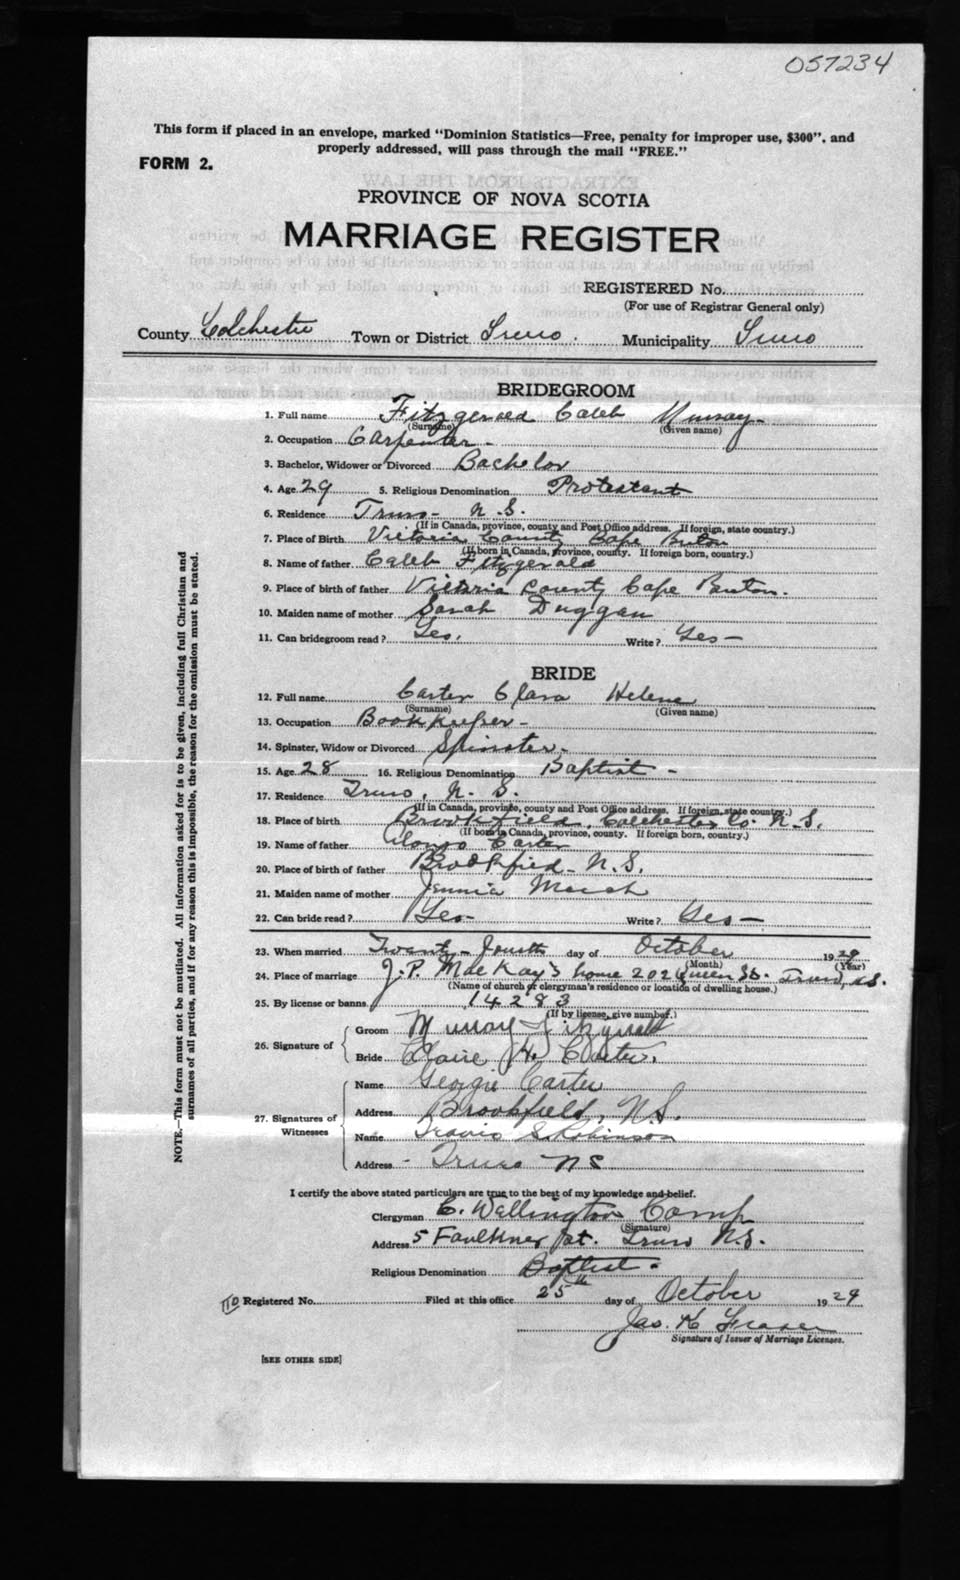 057234
This form if placed in an envelope, marked "Dominion Statistics—Free, penalty for improper use, $300", and
properly addressed, will pass through the mail "FREE."
FORM 2.
PROVINCE OF NOVA SCOTIA
MARRIAGE REGISTER
REGISTERED No.
(For use of Registrar General only)
County Colchester Town or District Truro. Municipality Truro
BRIDEGROOM
1. Full name Fitzgerald Caleb Murray-
(Surname) (Given name)
2. Occupation Carpenter-
3. Bachelor, Widower or Divorced Bachelor
4. Age 29 5. Religious Denomination Protestant
6. Residence Truro- N.S.
(If in Canada, province, county and Post Office address. If foreign, state country.)
7. Place of Birth Victoria County Cape Breton
(If born in Canada, province, county. If foreign born, country.)
8. Name of father Caleb Fitzgerald
9. Place of birth of father Victoria County Cape Breton.
10. Maiden name of mother Sarah Duggan
11. Can bridegroom read? Yes. Write? Yes—
BRIDE
12. Full name Carter Clara Helene
(Surname) (Given name)
13. Occupation Bookkeeper-
14. Spinster, Widow or Divorced Spinster-
15. Age 28 16. Religious Denomination Baptist-
17. Residence Truro, N.S.
(If in Canada, province, county and Post Office address. If foreign, state country.)
18. Place of birth Brookfield, Colchester Co. N.S.
(If born in Canada, province, county. If foreign born, country.)
19. Name of father Alonzo Carter
20. Place of birth of father Brookfield- N.S.
21. Maiden name of mother Jennie
22. Can bride read? Yes- Write? Yes—
23. When married Twenty-Fourth day of October 1929
(Month) (Year)
24. Place of marriage J.P. MacKay's home 202 Queen St. Truro, N.S.
(Name of church or clergyman's residence or location of dwelling house.)
25. By license or banns 14283
(If by license, give number.)
26. Signature of
Groom Murray Fitzgerald
Bride Claire H. Carter.
27. Signatures of Witnesses
Name Georgie Carter
Address Brookfield, N.S.
Name Travis S. Robinson
Address - Truro NS
I certify the above stated particulars are true to the best of my knowledge and belief.
Clergyman C. Wellington Camp
(Signature)
Address 5 Faulkner St. Truro N.S.
Religious Denomination Baptist-
110 Registered No. Filed at this office 25th day of October 1929
Jas. K Fraser
Signature of Issuer of Marriage Licenses.
[SEE OTHER SIDE]
NOTE.—This form must not be mutilated. All information asked for is to be given, including full Christian and
surnames of all parties, and if for any reason this is impossible, the reason for the omission must be stated.